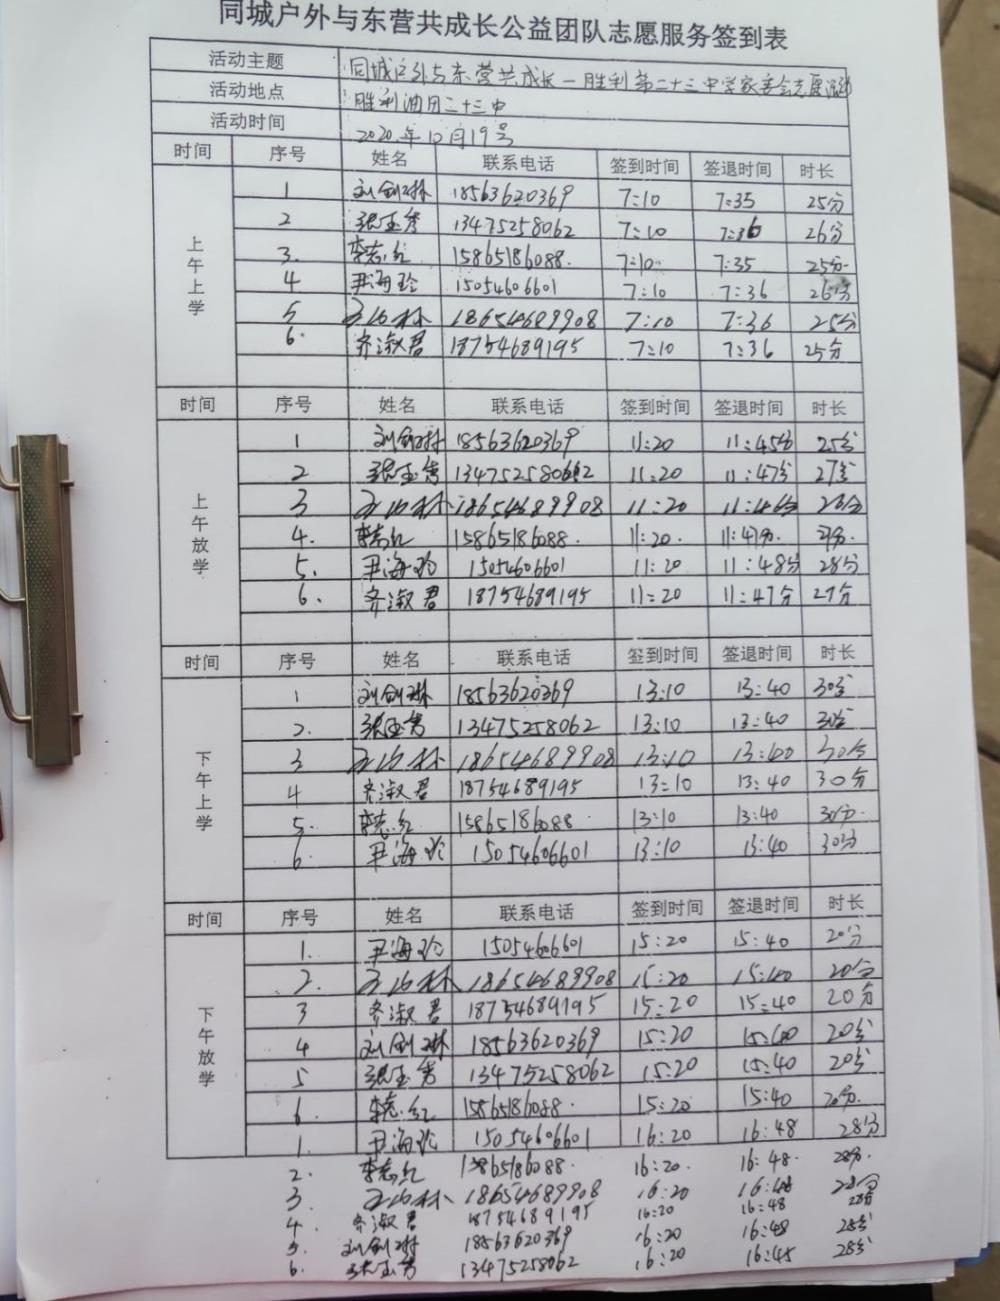 同城户外与东营共成长公益团队志愿服务签到表
活动主题 同城户外与东营共成长一胜利第二十三中学家委会志愿活动
活动地点 胜利油田二十三中
活动时间 2020年10月19号
时间 序号 姓名 联系电话 签到时间 签退时间 时长
上午上学
1 刘剑琳 18563620369 7:10 7:35 25分
2 张玉秀 13475258062 7:10 7:36 26分
3. 李志红 15865186088. 7:10 7:35 25分
4 尹海玲 15054606601 7:10 7:36 26分
5 18654689908 7:10 7:36 25分
6. 齐淑君 18754689195 7:10 7:36 25分
时间 序号 姓名 联系电话 签到时间 签退时间 时长
上午放学
1 刘剑琳 18563620369 11:20 11:45分 25分
2 张玉秀 13475258062 11:20 11:47分 27分
3 18654689908 11:20 11:46分 26分
4. 李志红 15865186088. 11:20. 11:47分. 27分.
5. 尹海玲 15054606601 11:20 11:48分 28分
6. 齐淑君 18754689195 11:20 11:47分 27分
时间 序号 姓名 联系电话 签到时间 签退时间 时长
下午上学
1 刘剑琳 18563620369 13:10 13:40 30分
2. 张玉秀 13475258062 13:10 13:40 30分
3 18654689908 13:10 13:40 30分
4 齐淑君 18754689195 13:10 13:40 30分
5. 李志红 15865186088. 13:10 13:40 30分.
6. 尹海玲 15054606601 13:10 13:40 30分
时间 序号 姓名 联系电话 签到时间 签退时间 时长
下午放学
1. 尹海玲 15054606601 15:20 15:40 20分
2. 18654689908 15:20 15:40 20分
3 齐淑君 18754689195 15:20 15:40 20分
4 刘剑琳 18563620369 15:20 15:40 20分
5 张玉秀 13475258062 15:20 15:40 20分
6. 李志红 15865186088. 15:20 15:40 20分.
1. 尹海玲 15054606601 16:20 16:48 28分
2. 李志红 15865186088. 16:20. 16:48. 28分.
3. 18654689908 16:20 16:48 28分
4. 齐淑君 18754689195 16:20 16:48 28分
5. 刘剑琳 18563620369 16:20 16:48 28分
6. 张玉秀 13475258062 16:20 16:48 28分